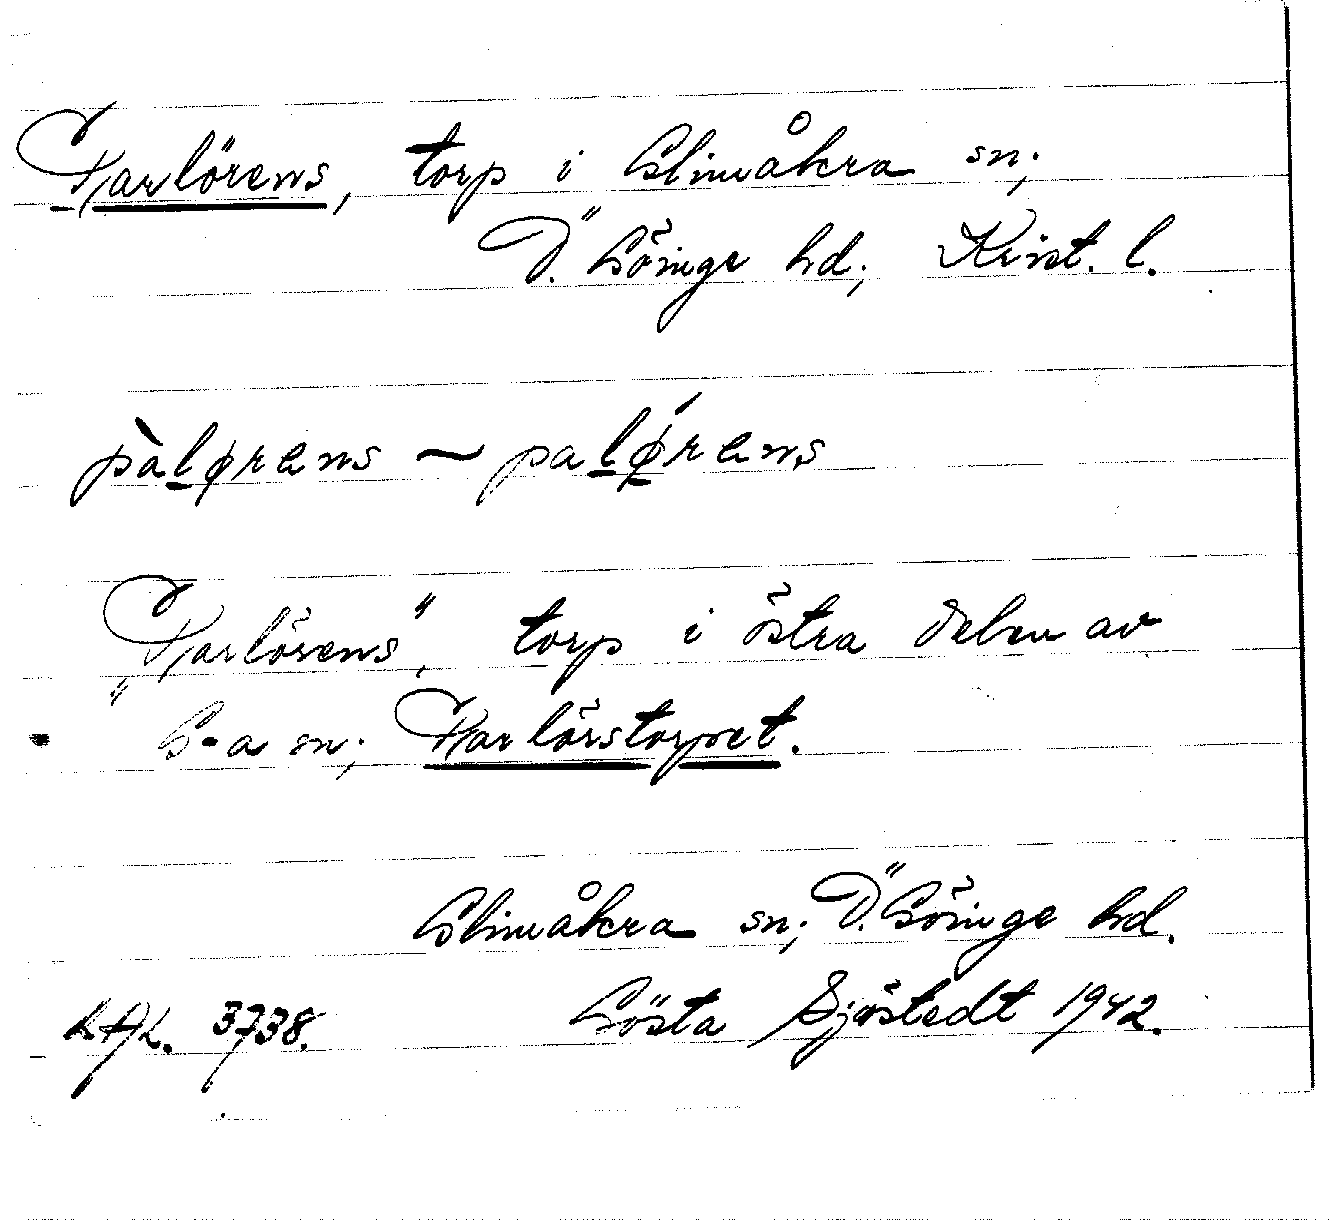 Parlörens, torp i Glimåkra sn;
Ö. Göinge hd; Krist. l.
pàlørens ~ palǿrens
"Parlörens", torp i östra delen av
G-a sn; Parlörstorpet.
Glimåkra sn; Ö. Göinge hd.
LAL. 3738. Gösta Sjöstedt 1942.